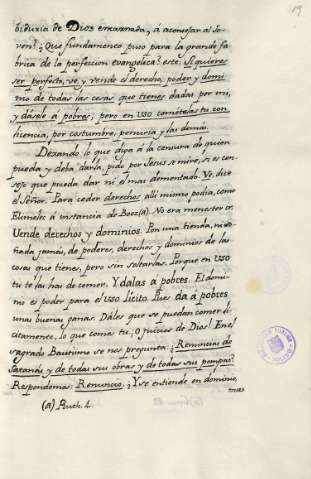 19
biduria de Dios encarnada, á aconsejar al Jo-
ven? ¿Que fundamento puso para la grande fa-
brica de la perfeccion evangelica? este: Si quieres
ser perfecto, ve, y vende el derecho, poder y domi-
nio de todas las cosas que tienes dadas por mi,
y daselo á pobres; pero en uso cometelas tu con-
ciencia, por costumbre, penuria y las demás.
Dexando lo que diga á la censura de quien
pueda y deba darla, pido por Jesus á miro, si es con-
sejo que pueda dar ni el mas dementado. Ve, dice
el Señor. Para ceder derechos alli mismo podia, como
Elimelec á instancia de Booz (a). No era menester ir.
Vende derechos y dominios. Pon una tienda, ni so-
ñada jamás, de poderes, derechos y dominios de las
cosas que tienes, pero sin soltarlas. Porque en uso
tu te las has de comer. Y dalas á pobres. El domi-
nio es poder para el uso licito. Pues da á pobres
unas buenas ganas. Dales que se puedan comer li-
citamente, lo que coma tu. O juicios de Dios! En el
sagrado Bautismo se nos pregunta: ¿Renuncias de
Satanás y de todas sus obras y de todas sus pompas?
Respondemos: Renuncio. ¿Y se entiende en dominio,
(a) Ruth. 4.